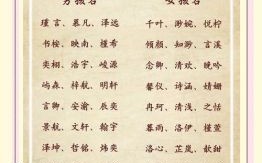 男孩名
女孩名
瑾言、慕凡、泽远
千叶、渺婉、悦柠
书桉、映南、槿希
倾颜、知渺、言溪
奕桐、浩宇、峻源
念卿、清欢、晚吟
屿森、梓航、明轩
馨仪、诗涵、婧姗
言卿、安渝、辰奕
冉珂、清浅、之恬
景航、文轩、翰宇
暮雨、洛伊、槿萱
泽坤、哲铭、炜奕
洛心、芷岚、歆甜